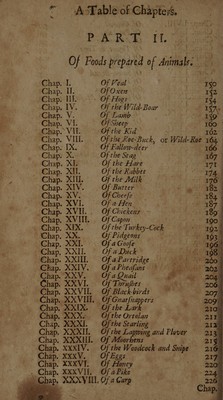 A Table of Chapters.
PART II.
Of Foods prepared of Animals.
Chap. I. Of Veal 150
Chap. II. Of Oxen 152
Chap. III. Of Hogs 154
Chap. IV. Of the Wild-Boar 157
Chap. V. Of Lamb 159
Chap. VI. Of Sheep 160
Chap. VII. Of the Kid 162
Chap. VIII. Of the Roe-Buck, or Wild-Rot 164
Chap. IX. Of Fallow-deer 166
Chap. X. Of the Stag 167
Chap. XI. Of the Hare 171
Chap. XII. Of the Rabbet 174
Chap. XIII. Of the Milk 176
Chap. XIV. Of Butter 182
Chap. XV. Of Cheese 184
Chap. XVI. Of a Hen 187
Chap. XVII. Of Chickens 189
Chap. XVIII. Of Capon 190
Chap. XIX. Of the Turkey-Cock 192
Chap. XX. Of Pidgeons 193
Chap. XXI. Of a Goose 196
Chap. XXII. Of a Duck 198
Chap. XXIII. Of a Partridge
Chap. XXIV. Of a Pheasant 202
Chap. XXV. Of a Quail 204
Chap. XXVI. Of Thrushes 206
Chap. XXVII. Of Black-birds 207
Chap. XXVIII. Of Gnatsnappers 209
Chap. XXIX. Of the Lark 210
Chap. XXX. Of the Ortolan 211
Chap. XXXI. Of the Starling 212
Chap. XXXII. Of the Lapwing and Plover
Chap. XXXIII. Of Moorhens 215
Chap. XXXIV. Of the Woodcock and Snipe 216
Chap. XXXV. Of Eggs 217
Chap. XXXVI. Of Honey 220
Chap. XXXVII. Of a Pike 224
Chap. XXXVIII. Of a Carp 226
Chap.